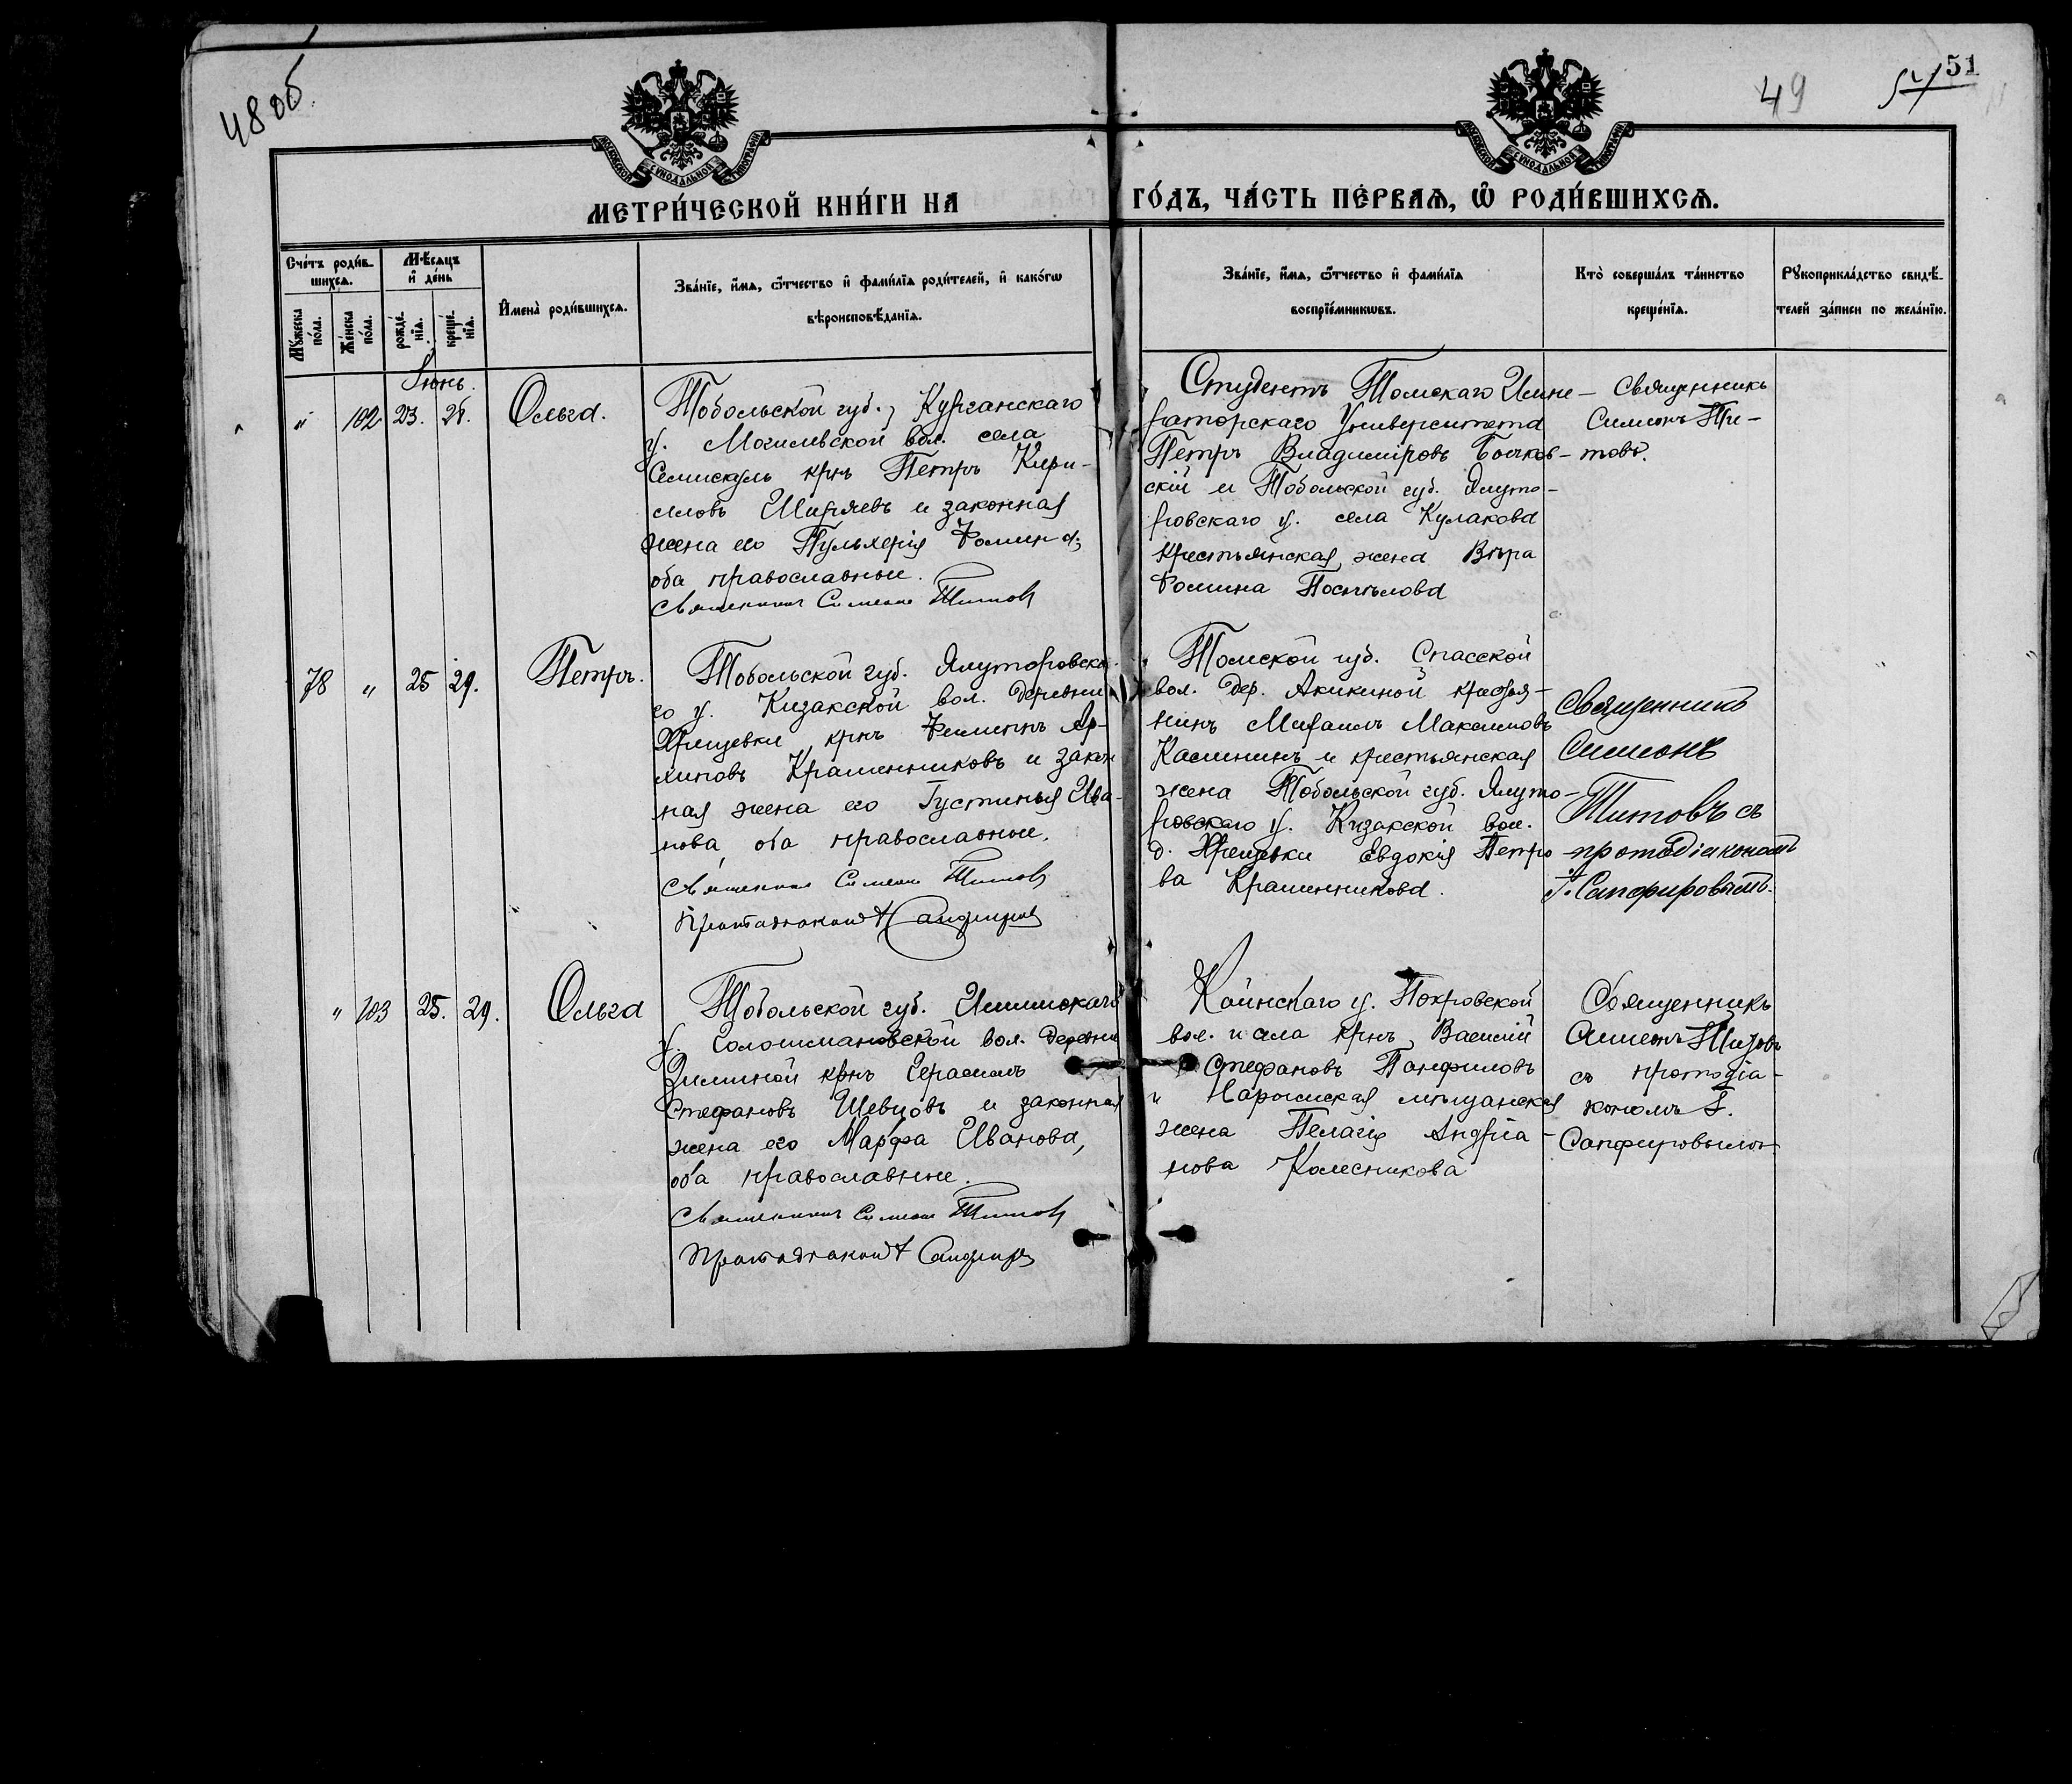 48 об.
49
51
МОСКОВСКОЙ СѴНОДАЛЬНОЙ ТИПОГРАФІИ
МОСКОВСКОЙ СѴНОДАЛЬНОЙ ТИПОГРАФІИ
МЕТРИ́ЧЕСКОЙ КНИ́ГИ НА ГО́ДЪ, ЧА́СТЬ ПЕ́РВАѦ, Ѡ҆ РОДИ́ВШИХСѦ.
Сче́тъ роди́в-
шихсѧ.
Мꙋ́жеска
по́ла.
Же́нска
по́ла.
Мѣ́сѧцъ
и҆ де́нь
рожде́-
нїѧ.
креще́-
нїѧ.
И҆мена̀ роди́вшихсѧ.
Зва́нїе, и҆́мѧ, ѻ҆́тчество и҆ фами́лїѧ роди́телей, и҆ како́гѡ
вѣроисповѣ́данїѧ.
Зва́нїе, и҆́мѧ, ѻ҆́тчество и҆ фами́лїѧ
воспрїе́мникѡвъ.
Кто̀ соверша́лъ та́инство
креще́нїѧ.
Рꙋкоприкла́дство свидѣ́-
телей за́писи по жела́нїю.
Іюнь.
" 102 23. 26. Ольга.
Тобольской губ., Курганскаго
у. Могилевской вол. села
Семискуль крнъ Петръ Кири-
ловъ Ширяевъ и законная
жена его Пульхерія Фомина,
оба православные.
Священникъ Симеонъ Титовъ
Студентъ Томскаго Импе-
раторскаго Университета
Петръ Владиміровъ Бочков-
скій и Тобольской губ. Ялуто-
ровскаго у. села Кулакова
крестьянская жена Вѣра
Фомина Поспѣлова
Священникъ
Симеонъ Ти-
товъ.
78 " 25 29. Петръ.
Тобольской губ. Ялуторовска-
го у. Кизакской вол. деревни
Хрещевки крнъ Филиппъ Ар-
хиповъ Крашенниковъ и закон
ная жена его Густинья Ива-
нова, оба православные.
Священникъ Симеонъ Титовъ
Протодіаконъ І Сапфировъ
Томской губ. Спасской
вол. дер. Акикиной крестья-
нинъ Михаилъ Максимовъ
Калининъ и крестьянская
жена Тобольской губ. Ялуто-
ровскаго у. Кизакской вол.
д. Хрещевки Евдокія Петро
ва Крашенникова.
Священникъ
Симеонъ
Титовъ съ
протодіакономъ
І. Сапфировымъ.
" 103 25. 29. Ольга
Тобольской губ. Ишимскаго
у. Солошмановской вол. деревни
Зиминой крнъ Герасимъ
Стефановъ Шевцовъ и законная
жена его Марфа Иванова,
оба православные.
Священникъ Симеонъ Титовъ
Протодіаконъ І Сапфировъ
Каинскаго у. Покровской
вол. и села крнъ Василій
Стефановъ Панфиловъ
и Нарымская мѣщанская
жена Пелагія Андріа-
нова Колесникова
Священникъ
Симеонъ Титовъ
съ протодіа-
кономъ І.
Сапфировымъ